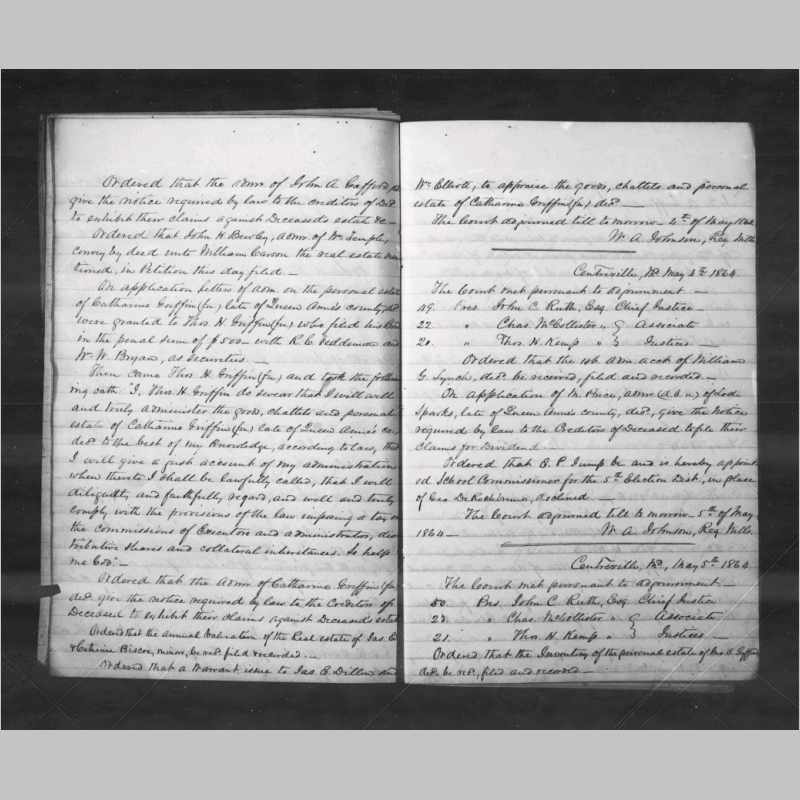 Ordered that the admr of John A. Gafford,
give the notice required by law to the creditors of Decd
to exhibit their claims against Deceased's estate &c—
Ordered that John H. Bewley, admr of Wm Temple,
convey by deed unto William Carson the real estate men
tioned, in Petition this day filed—
On application letters of adm. on the personal estate
of Catharine Griffin (fn) late of Queen Ann's county,
were granted to Thos H. Griffin (fn) who filed his
in the penal sum of $500— with R. C. Neddeman and
Wm W. Bryan, as securities.—
Then came Thos H. Griffin (fn) and took the follow
ing oath "I, Thos. H. Griffin do swear that I will well
and truly administer the goods, chattels and personal
estate of Catharine Griffin (fn) late of Queen Ann's co.
decd to the best of my Knowledge, according to law, that
I will give a just account of my administration
when thereto I shall be lawfully called, that I will
diligently and faithfully, regard, and well and truly
comply with the provisions of the law imposing a tax on
the commissions of Executors and administrators, dis
tributive shares and collateral inheritances. So help
me God."—
Ordered that the Admr of Catharine Griffin (fn
decd give the notice required by law to the Creditors of
Deceased to exhibit their claims against Deceased's estate
Ordered that the annual Valuation of the Real estate of Jas.
Biscoe, minor, be recd filed & recorded.—
Ordered that a Warrant issue to Jas. E. Dillen and
Wm Elliott, to appraise the goods, chattels and personal
estate of Catharine Griffin (fn) decd—
The Court adjourned till to morrow 4th of May 1864
W. A. Johnson, Reg. Wills
Centreville, Md May 4th 1864
The Court met pursuant to adjournment—
49. Pres. John C. Ruth, Esq. Chief Justice—
22. " Chas. McCollister, " } Associate
20. " Thos. H. Kemp " } Justices—
Ordered that the 1st adm. acct of William
G. Lynch, decd be received, filed and recorded—
On application of M. admr (d.b.n.) of
Sparks, late of Queen Ann's county, decd, give the Notice
required by law to the Creditors of Deceased to file their
Claims for Dividend—
Ordered that B. P. Jump be and is hereby appoint
ed School Commissioner for the 5th Election Dist., in place
of Geo. declined—
The Court adjourned till to morrow 5th of May
1864— W. A. Johnson, Reg. Wills.
Centreville, Md, May 5th 1864
The Court met pursuant to adjournment—
50. Pres. John C. Ruth, Esq. Chief Justice
23. " Chas. McCollister " } Associate
21. " Thos. H. Kemp " } Justices—
Ordered that the Inventory of the personal estate of Gafford
decd be recd, filed and recorded—